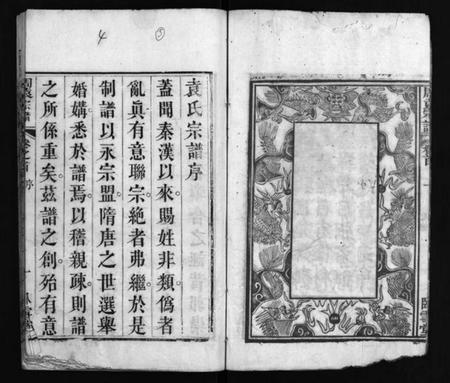 4
③
袁氏宗譜序
蓋聞秦漢以來賜姓非類偽者
亂真有意聯宗絕者弗繼於是
制譜以永宗盟隋唐之世選舉
婚媾悉於譜焉以稽親疎則譜
之所係重矣茲譜之創殆有意
卷之首 序